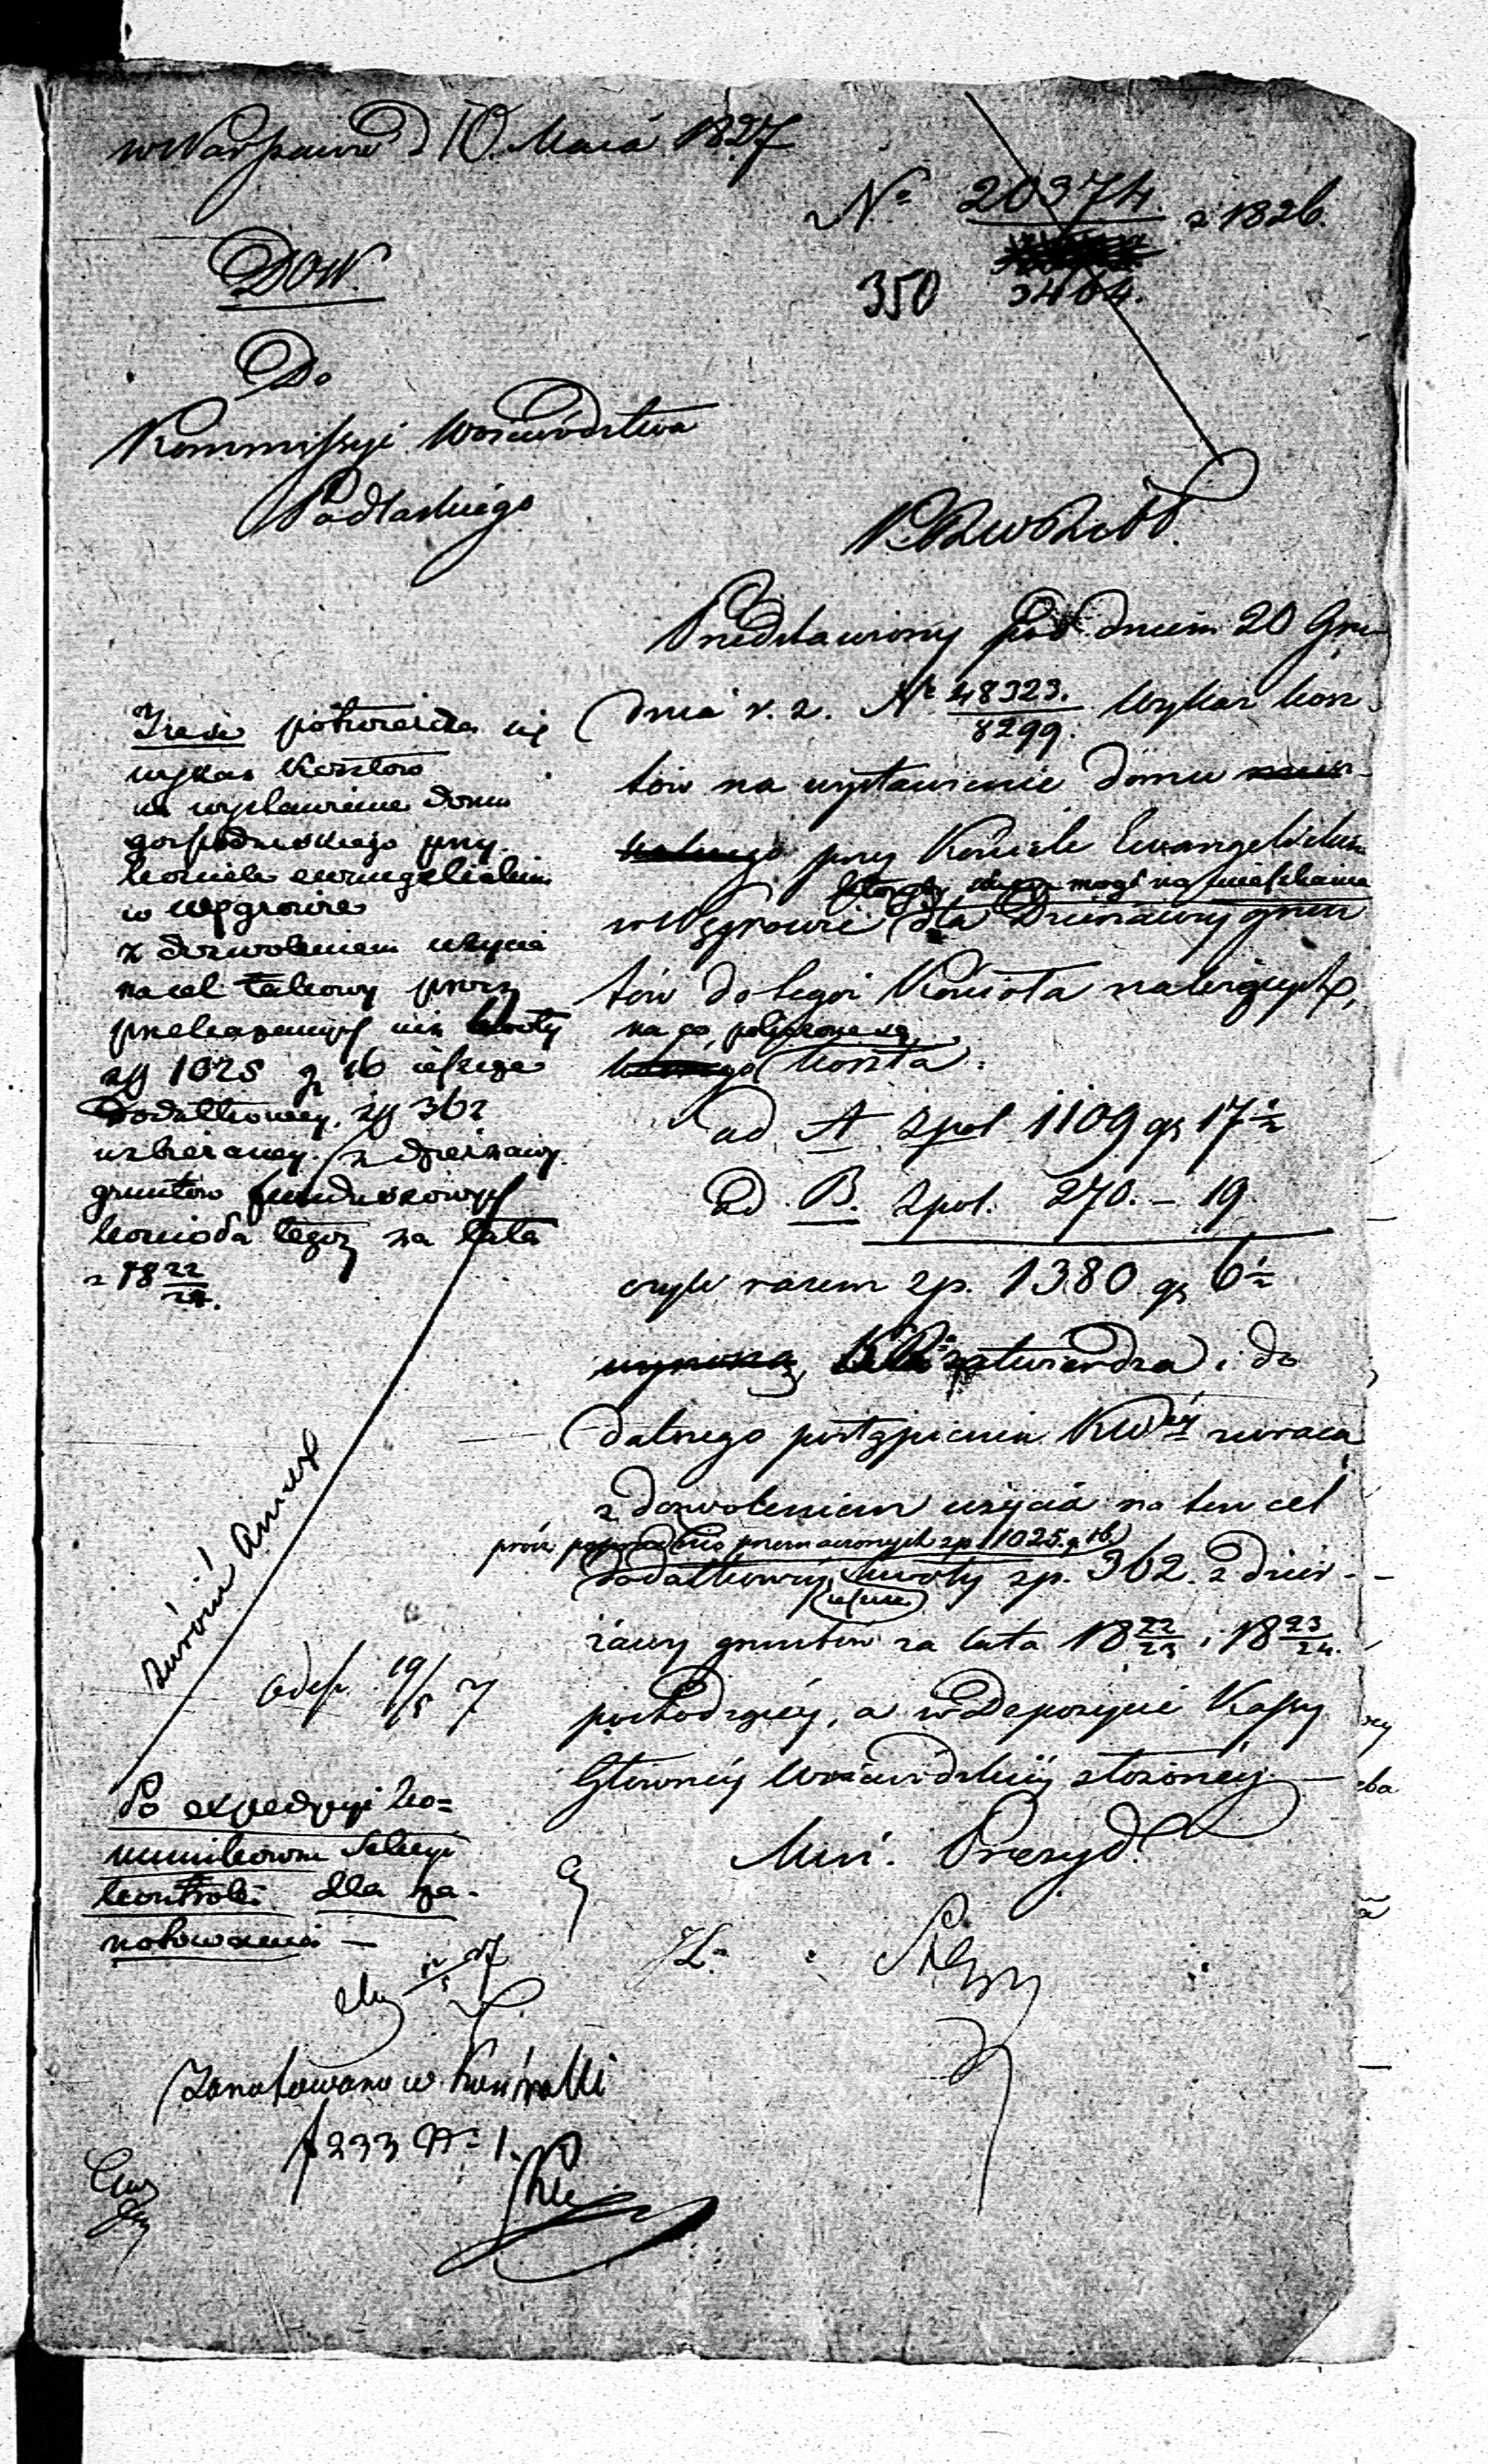 w Warszawie d 10. Maia 1827
Nº 20374. z 1826.
350 3464.
DOW.
Do
Kommissyi Woiewództwa
Podlaskiego
Przedstawiony pod dniem 20 Gru
dnia r. z. Nr 48323. wykaz kosz
8299.
tów na wystawienie domu miesz
kalnego przy Kościele Ewangelickim
mogł na mieszkanie
w Węgrowie dla Dzierżawcy grun
tów do tegoż Kościoła należących,
na co, policzone są
koszta.
ad A zpol 1109 gr 17½
ad B. zpol. 270. – 19
czyli razem zp. 1380 gr 6½
wynoszą, zatwierdza i do
dalszego postąpienia KWey zwraca
z dozwoleniem użycia na ten cel
prócz przeznaczonych zp 1025. gr 16
dodatkowey kwoty zp. 362. z dzier-
żawy gruntów za lata 18 22/23 i 18 23/24.
pochodzącey, a w Depozycie Kassy
Główney Woiewódzkiey złożoney. –
Min. Prezyd.
potwierdza się
wykaz kosztów
na wystawienie domu
gospodarskiego przy
kościele ewangelickim
w Węgrowie
z dozwoleniem użycia
na cel takowy prócz
kwoty
zł 1025 gr 16 ieszcze
dodatkowey. zł 362
uzbieraney z dzierżawy
gruntów funduszowych
kościoła tegoż za lata
z 18 22/24.
zwrócić annex
19/5 7
Po expedycyi ko=
munikowac Sekcyi
kontroli dla za-
notowania –
Zanotowano w Kontrolli
f 233 Nº 1.